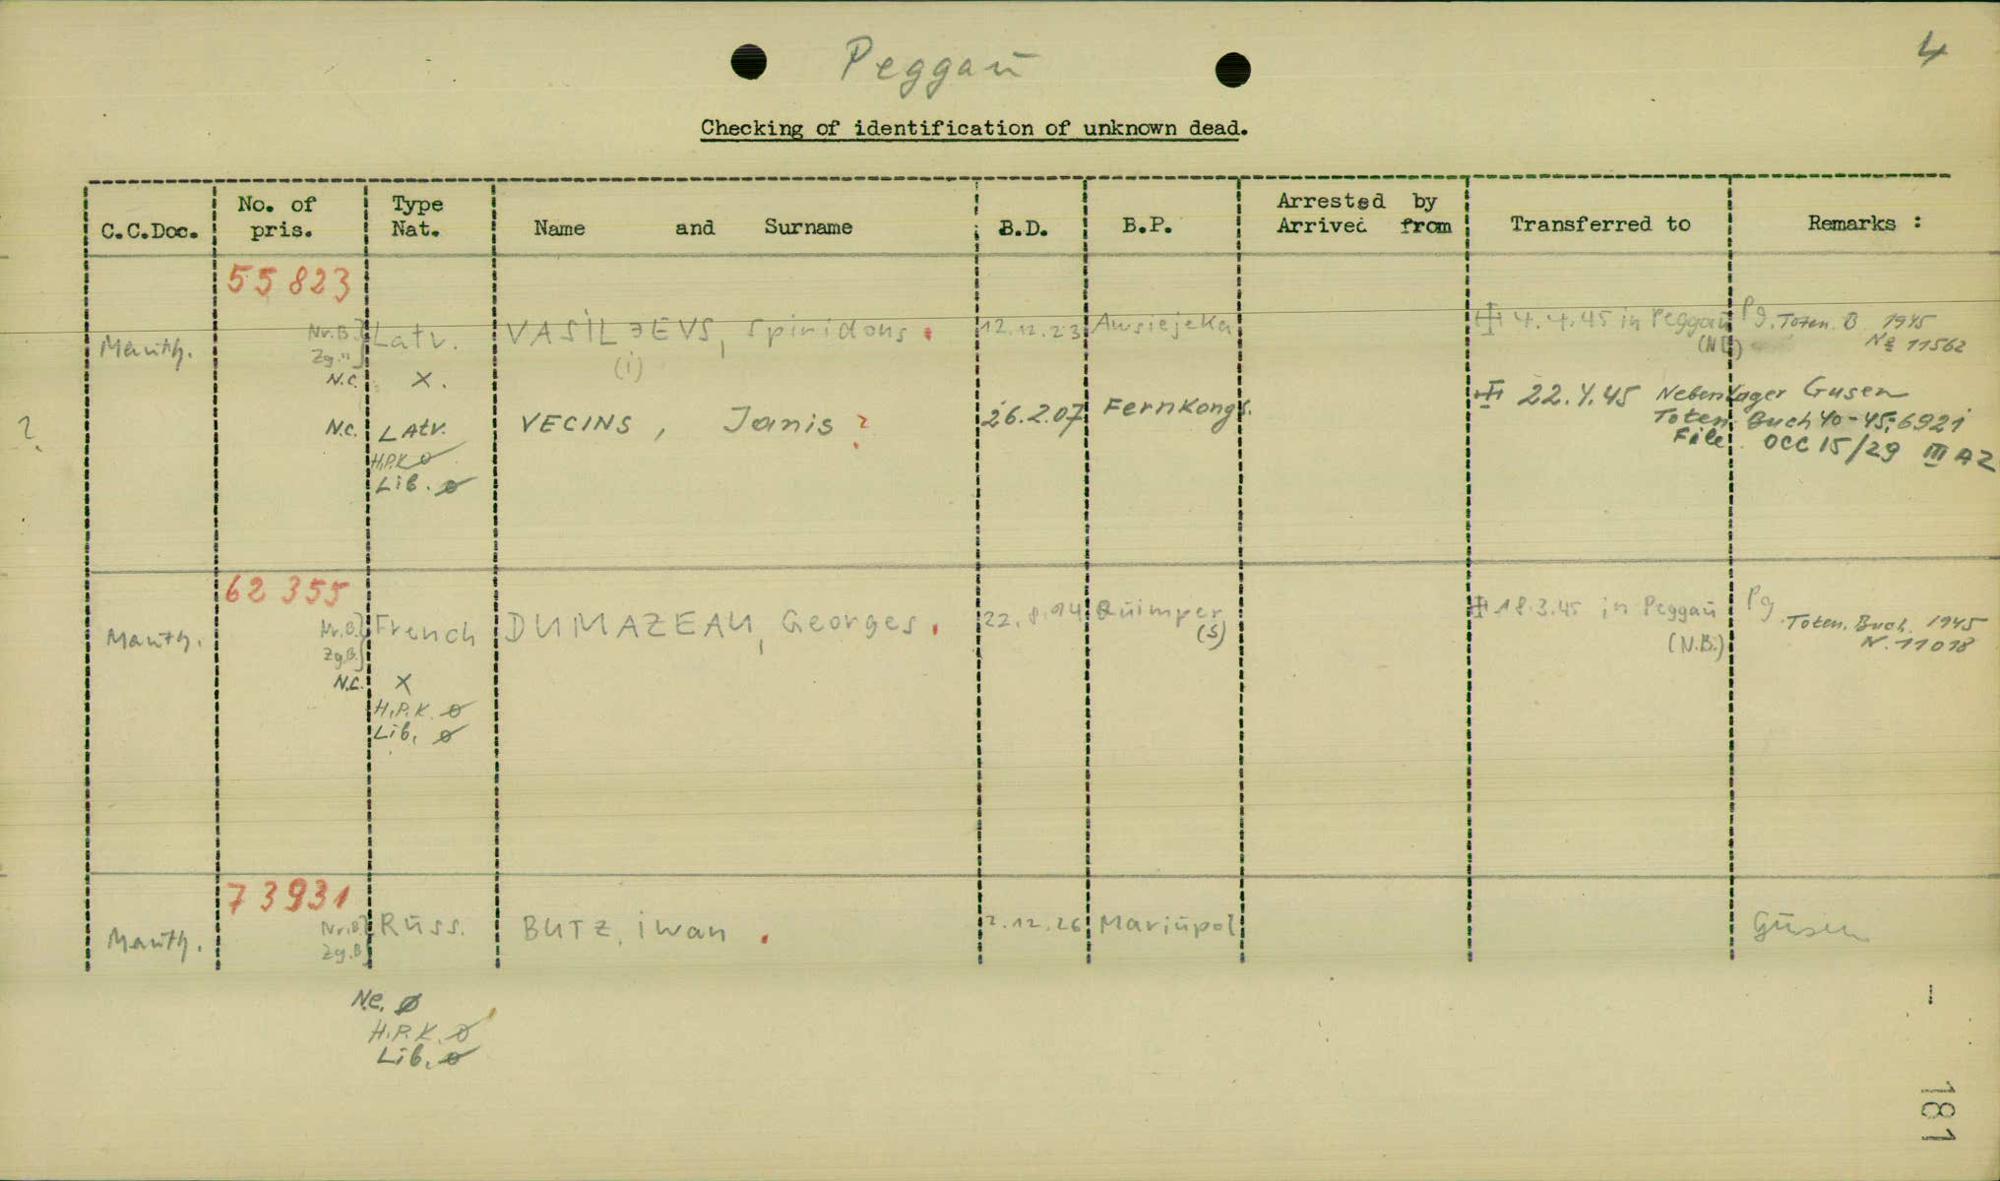 Peggaū
4
Checking of identification of unknown dead.
C.C.Doc. No. of pris. Type Nat. Name and Surname B.D. B.P. Arrested by Arrived from Transferred to Remarks :
55 823
Mauth. Nr.B. Latv. VASILJEVS, Spiridons. 12.12.23 Awsiejeka 4.4.45 in Peggaū Pg. Toten. B. 1945
Zg." (i) (NB) № 11562
N.C. X.
? N.C. LAtv. VECINS, Janis ? 26.2.07 Fernkongs. 22.4.45 Nebenlager Gusen
Toten Buch 40-45; 6921
H.P.K ø File OCC 15/29 III A2
Lib. ø
62 355
Mauth. Nr.B. French DUMAZEAU, Georges. 22.8.94 Qūimper 18.3.45 in Peggaū Pg. Toten. Buch. 1945
Zg.B. (S) (N.B.) N. 11018
N.C. X
H.P.K. ø
Lib. ø
73931
Mauth. Nr.B. Rūss. BUTZ, iwan. 2.12.26 Mariūpol Gūsen
Zg.B.
N.C. ø
H.P.K. ø
Lib. ø
181